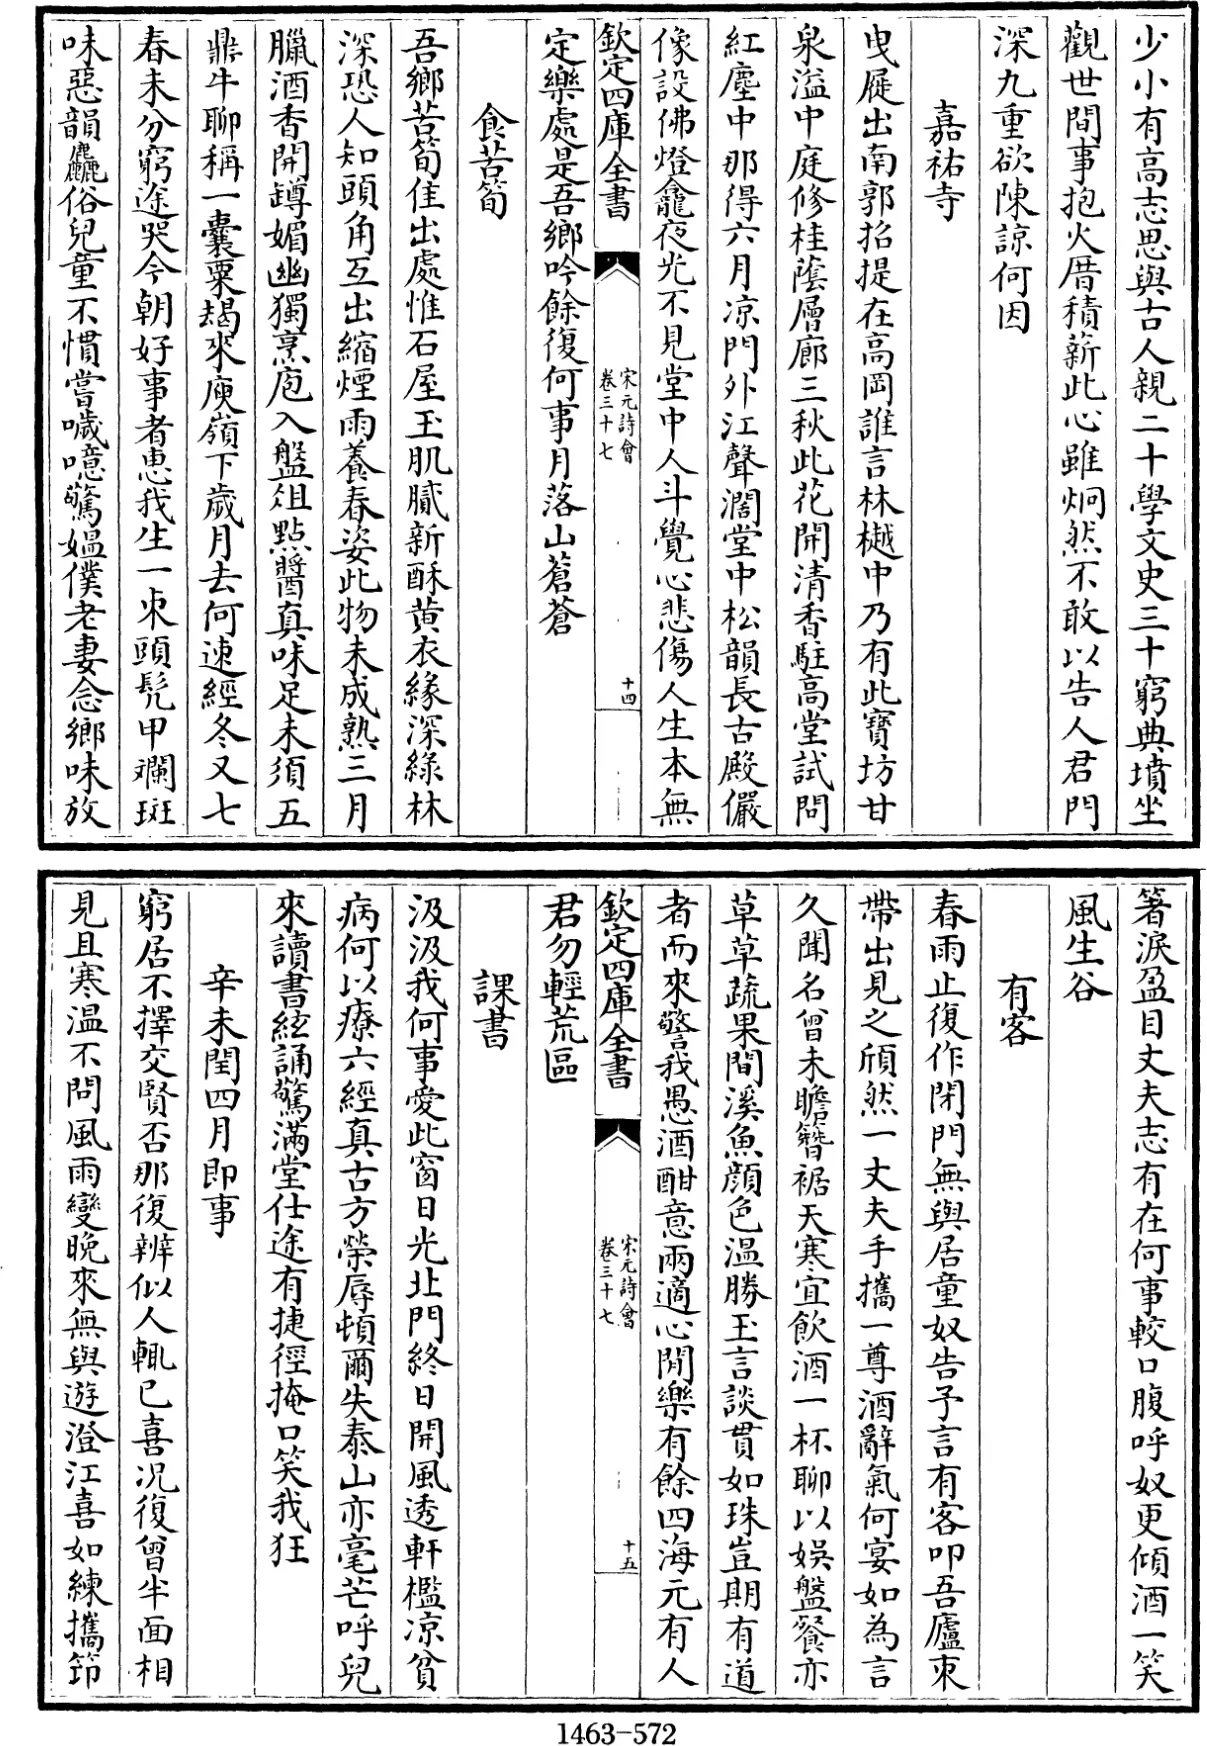 少小有高志思與古人親二十學文史三十窮典墳坐
觀世間事抱火厝積薪此心雖炯然不敢以告人君門
深九重欲陳諒何因
嘉祐寺
曳屣出南郭招提在高岡誰言林樾中乃有此寶坊甘
泉溢中庭修桂蔭層廊三秋此花開清香駐高堂試問
紅塵中那得六月凉門外江聲濶堂中松韻長古殿儼
像設佛燈龕夜光不見堂中人斗覺心悲傷人生本無
欽定四庫全書
宋元詩會
卷三十七
十四
定樂處是吾鄉吟餘復何事月落山蒼蒼
食苦筍
吾鄉苦筍佳出處惟石屋玉肌膩新酥黄衣緣深緑林
深恐人知頭角互出縮煙雨養春姿此物未成熟三月
臘酒香開罇媚幽獨烹庖入盤俎點醬真味足未須五
鼎牛聊稱一囊粟朅來庾嶺下歲月去何速經冬又七
春未分窮途哭今朝好事者惠我生一束頭髠甲斕斑
味惡韻麤俗兒童不慣嘗嘰噫驚媪僕老妻念鄉味放
箸淚盈目丈夫志有在何事較口腹呼奴更傾酒一笑
風生谷
有客
春雨止復作閉門無與居童奴告予言有客叩吾廬束
帶出見之頎然一丈夫手攜一尊酒辭氣何宴如為言
久聞名曾未瞻簪裾天寒宜飲酒一杯聊以娱盤餐亦
草草蔬果間溪魚顔色温勝玉言談貫如珠豈期有道
者而來警我愚酒酣意兩適心閒樂有餘四海元有人
欽定四庫全書
宋元詩會
卷三十七
十五
君勿輕荒區
課書
汲汲我何事愛此窗日光北門終日開風透軒檻凉貧
病何以療六經真古方榮辱頓爾失泰山亦毫芒呼兒
來讀書絃誦驚滿堂仕途有捷徑掩口笑我狂
辛未閏四月即事
窮居不擇交賢否那復辨似人輒已喜况復曾半面相
見且寒温不問風雨變晚來無與遊澄江喜如練攜笻
1463-572